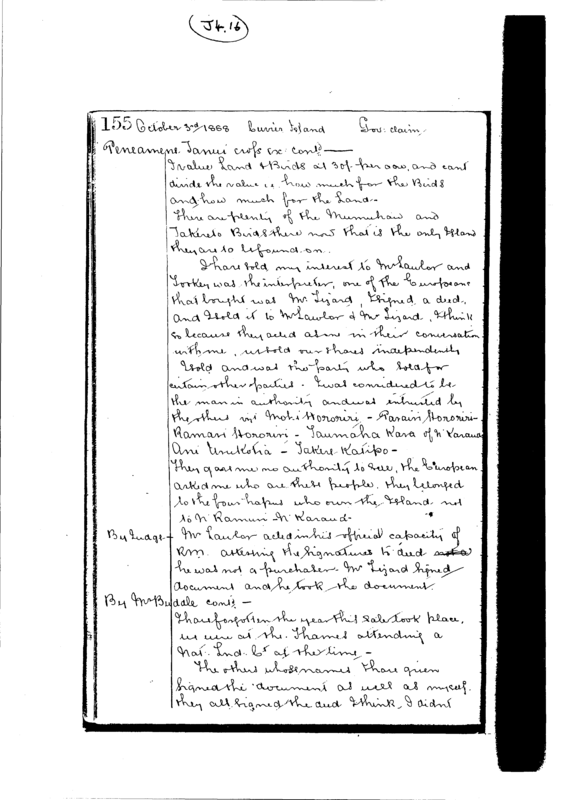 J4.16
155 October 3rd 1888 Cuvier Island Gov: claim
Peneamene Tanui crofs ex contd —
I value Land & Birds at 30/- per acre, and cant
divide the value i.e. how much for the Birds
and how much for the Land -
There are plenty of the and
Birds there now that is the only Island
they are to be found on.
I have sold my interest to Mr Lawlor and
was the interpreter, one of the Europeans
that bought was Mr. Lizard, I signed a deed,
and I sold it to Mr Lawlor & Mr Lizard, I think
so because they acted as one in their conversation
with me, we sold our shares independently
I sold and was the party who sold for
certain other parties. I was considered to be
the man in authority and was intrusted by
the others viz Mohi Hororiri - Hororiri -
Ramari Hororiri - Taumaha Kara of N' Karaua
Ani -
They gave me no authority to sell, the European
asked me who are these people, they belonged
to the four hapus who own the Island not
to N' Ramuri N' Karaua -
By Judge - Mr Lawlor acted in his official capacity of
R.M. attesting the signatures to deed
he was not a purchaser Mr Lizard signed
document and he took the document
By Mr Buddle contd -
I have forgotten the year this sale took place,
we were at the Thames attending a
Nat. Lnd. Ct at the time -
The others whose names I have given
signed the document as well as myself.
they all signed the deed I think, I didn't